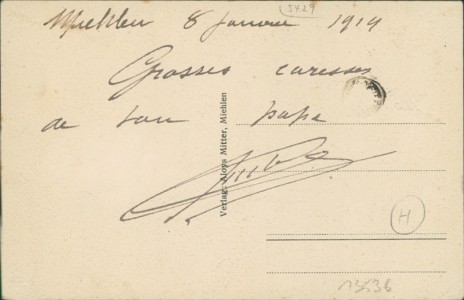 Miehlen 8 Janvier 1919
(3429
Grosses caresses
de ton papa
Verlag: Aloys Mitter, Miehlen
H
13536